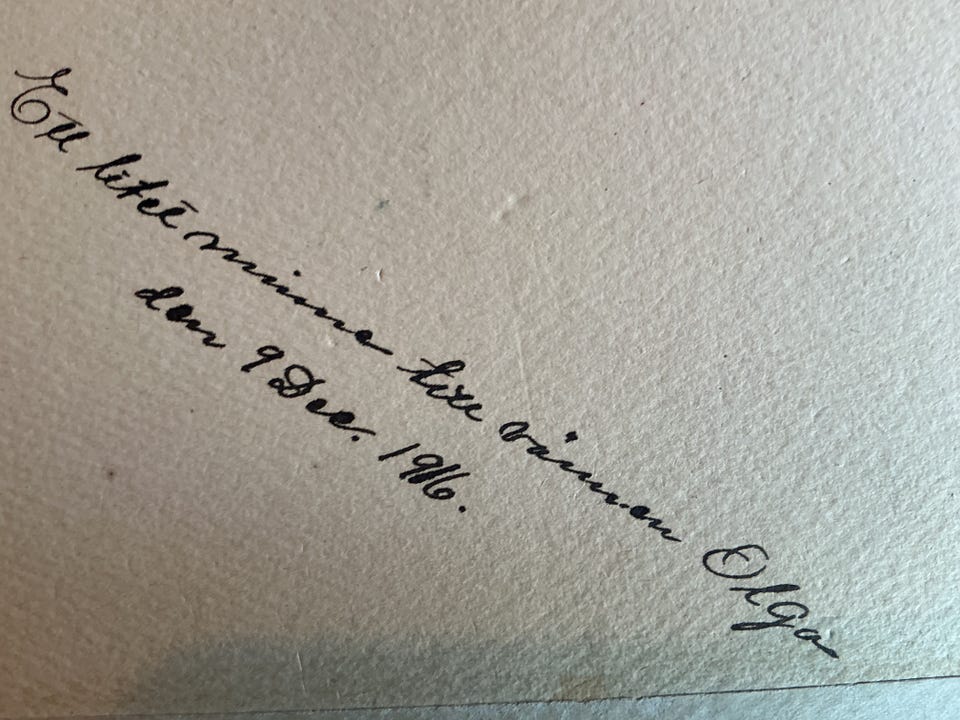 Ett litet minne till vännen Olga
den 9 Dec. 1916.